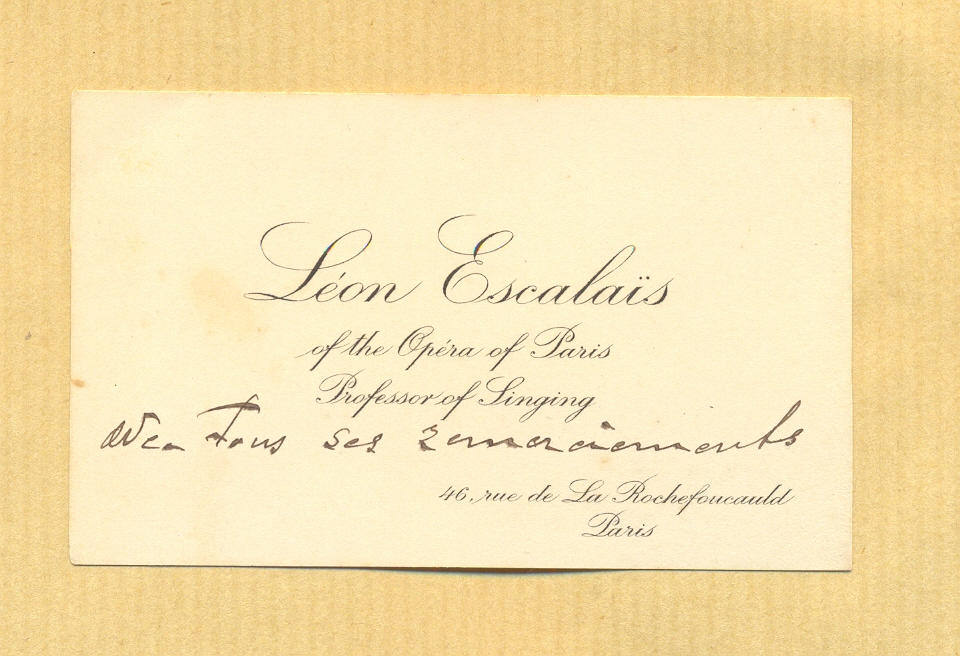 Léon Escalaïs
of the Opéra of Paris
Professor of Singing
avec tous ses remerciements
46, rue de La Rochefoucauld
Paris